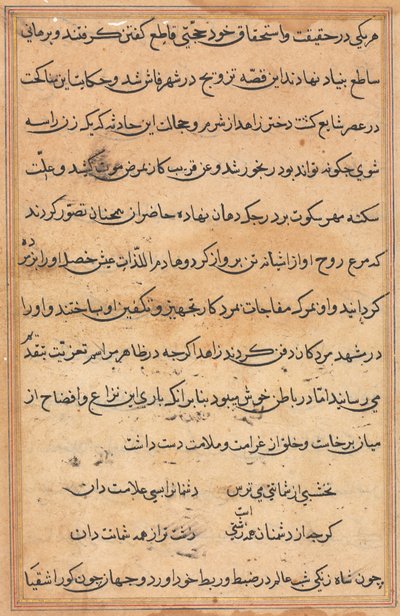 هر یکی در حقیقت و استحقاق خود حجتی قاطع کفتن کرفتند و برهانی
ساطع بنیاد نهادند این قصه تزویج در شهر فاش شد و حکایت این مناکحت
در عصر شایع کشت دختر زاهد از شرم و خجالت این حادثه که یک زن را سه
شوی چکونه تواند بود رنجور شد و عن قریب کار بمرض موت کشید و علت
سکته مهر سکوت بر درجک دهان نهاد حاضران همچنان تصور کردند
که مرغ روح او از اشیانه تن پرواز کرد و هادم اللذات عیش او را پژمرده
کردانید و او بمرک مفاجات بمرد کار تجهیز و تکفین او ساختند و او را
در مشهد مردکان دفن کردند زاهد اکرچه در ظاهر مراسم تعزیت بتقدیم
می رسانید اما در باطن خوش میبود بنابر انکه باری این نزاع و افضاح از
میان برخاست و خلق از غرامت و ملامت دست داشت
نخشبی از شماتتی می ترس دشمنانرا بسی علامت دان
کرچه از دشمنان همه زشتی است زشت تر از همه شماتت دان
چون شاه زنکی شب عالم در ضبط و ربط خود اورد و جهان چون کور اشقیا